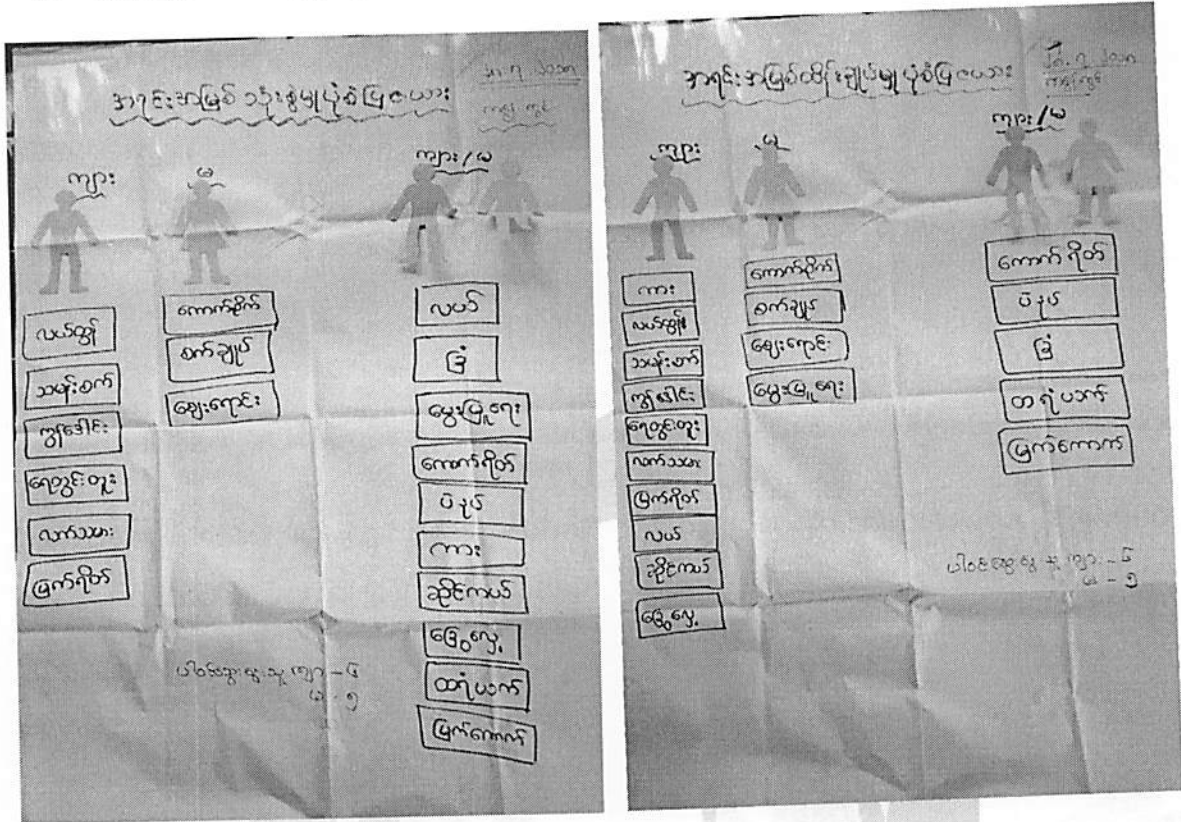 အရင်းအမြစ် သုံးစွဲမှုပုံစံပြဇယား
ကျား
မ
ကျား/မ
လယ်ထွန်
သမန်းစက်
ကျွဲခေါင်း
ရေတွင်းတူး
လက်သမား
မြက်ရိတ်
ကောက်စိုက်
စက်ချုပ်
ဈေးရောင်း
လယ်
ခြံ
မွေးမြူရေး
ကောက်ရိတ်
ပဲနုပ်
ကား
ဆိုင်ကယ်
ခြွေလှေ့
ထရံယက်
မြက်ကောက်
ပါဝင်ဆွေးနွေးသူ ကျား - ၆
မ - ၅
အရင်းအမြစ်ထိန်းချုပ်မှုပုံစံပြဇယား
ကျား
မ
ကျား/မ
ကား
လယ်ထွန်
သမန်းစက်
ကျွဲခေါင်း
ရေတွင်းတူး
လက်သမား
မြက်ရိတ်
လယ်
ဆိုင်ကယ်
ခြွေလှေ့
ကောက်စိုက်
စက်ချုပ်
ဈေးရောင်း
မွေးမြူရေး
ကောက်ရိတ်
ပဲနုပ်
ခြံ
တရံယက်
မြက်ကောက်
ပါဝင်ဆွေးနွေးသူ ကျား - ၆
မ - ၅